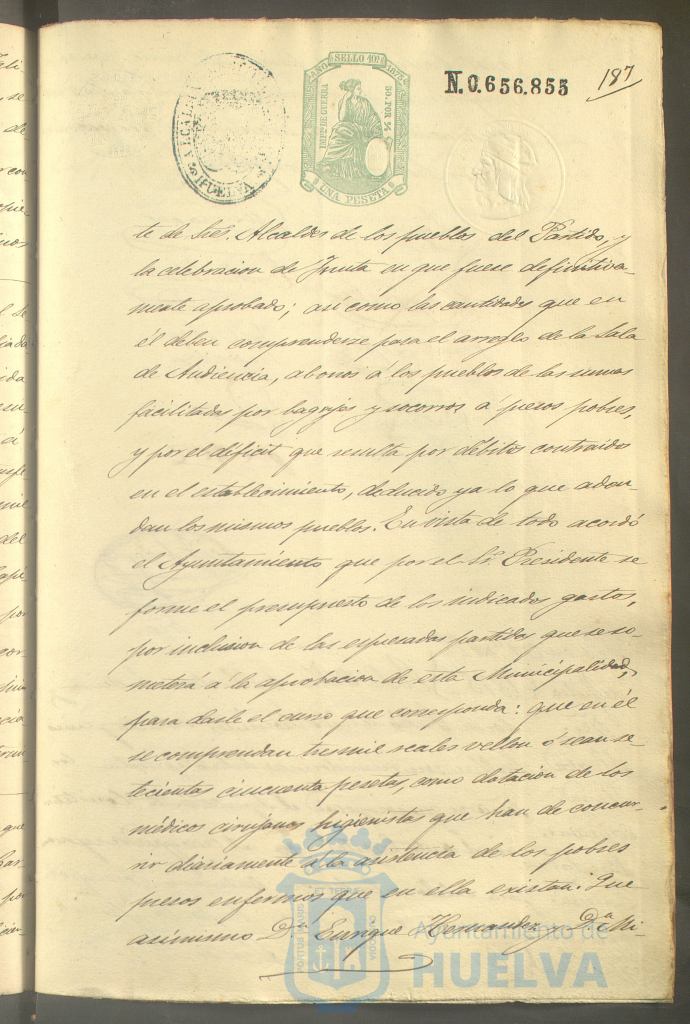 N.0.656.855
187
ALCALDIA
HUELVA
AÑO SELLO 10º 1875
IMPTO DE GUERRA
50 POR %
UNA PESETA
te de Sres. Alcaldes de los pueblos del Partido, y
la celebracion de Junta en que fuese definitiva-
mente aprobado; asi como las cantidades que en
él deben comprenderse para el arreglo de la Sala
de Audiencia, abonos á los pueblos de las sumas
facilitadas por bagajes y socorros á presos pobres,
y por el déficit que resulta por débitos contraidos
en el establecimiento, deducido ya lo que adeu-
dan los mismos pueblos. En vista de todo acordó
el Ayuntamiento que por el Sr. Presidente se
forme el presupuesto de los indicados gastos,
por inclusion de las espresadas partidas que se so-
meterá á la aprobacion de esta Municipalidad,
para darle el curso que corresponda: que en él
se comprendan tres mil reales vellon ó sean se-
tecientas cincuenta pesetas, como dotacion de los
médicos cirujanos higienistas que han de concur-
rir diariamente á la asistencia de los pobres
presos enfermos que en ella existan. Que
asimismo Dn. Enrique Hernandez, Dn. Mi-
Ayuntamiento de
HUELVA